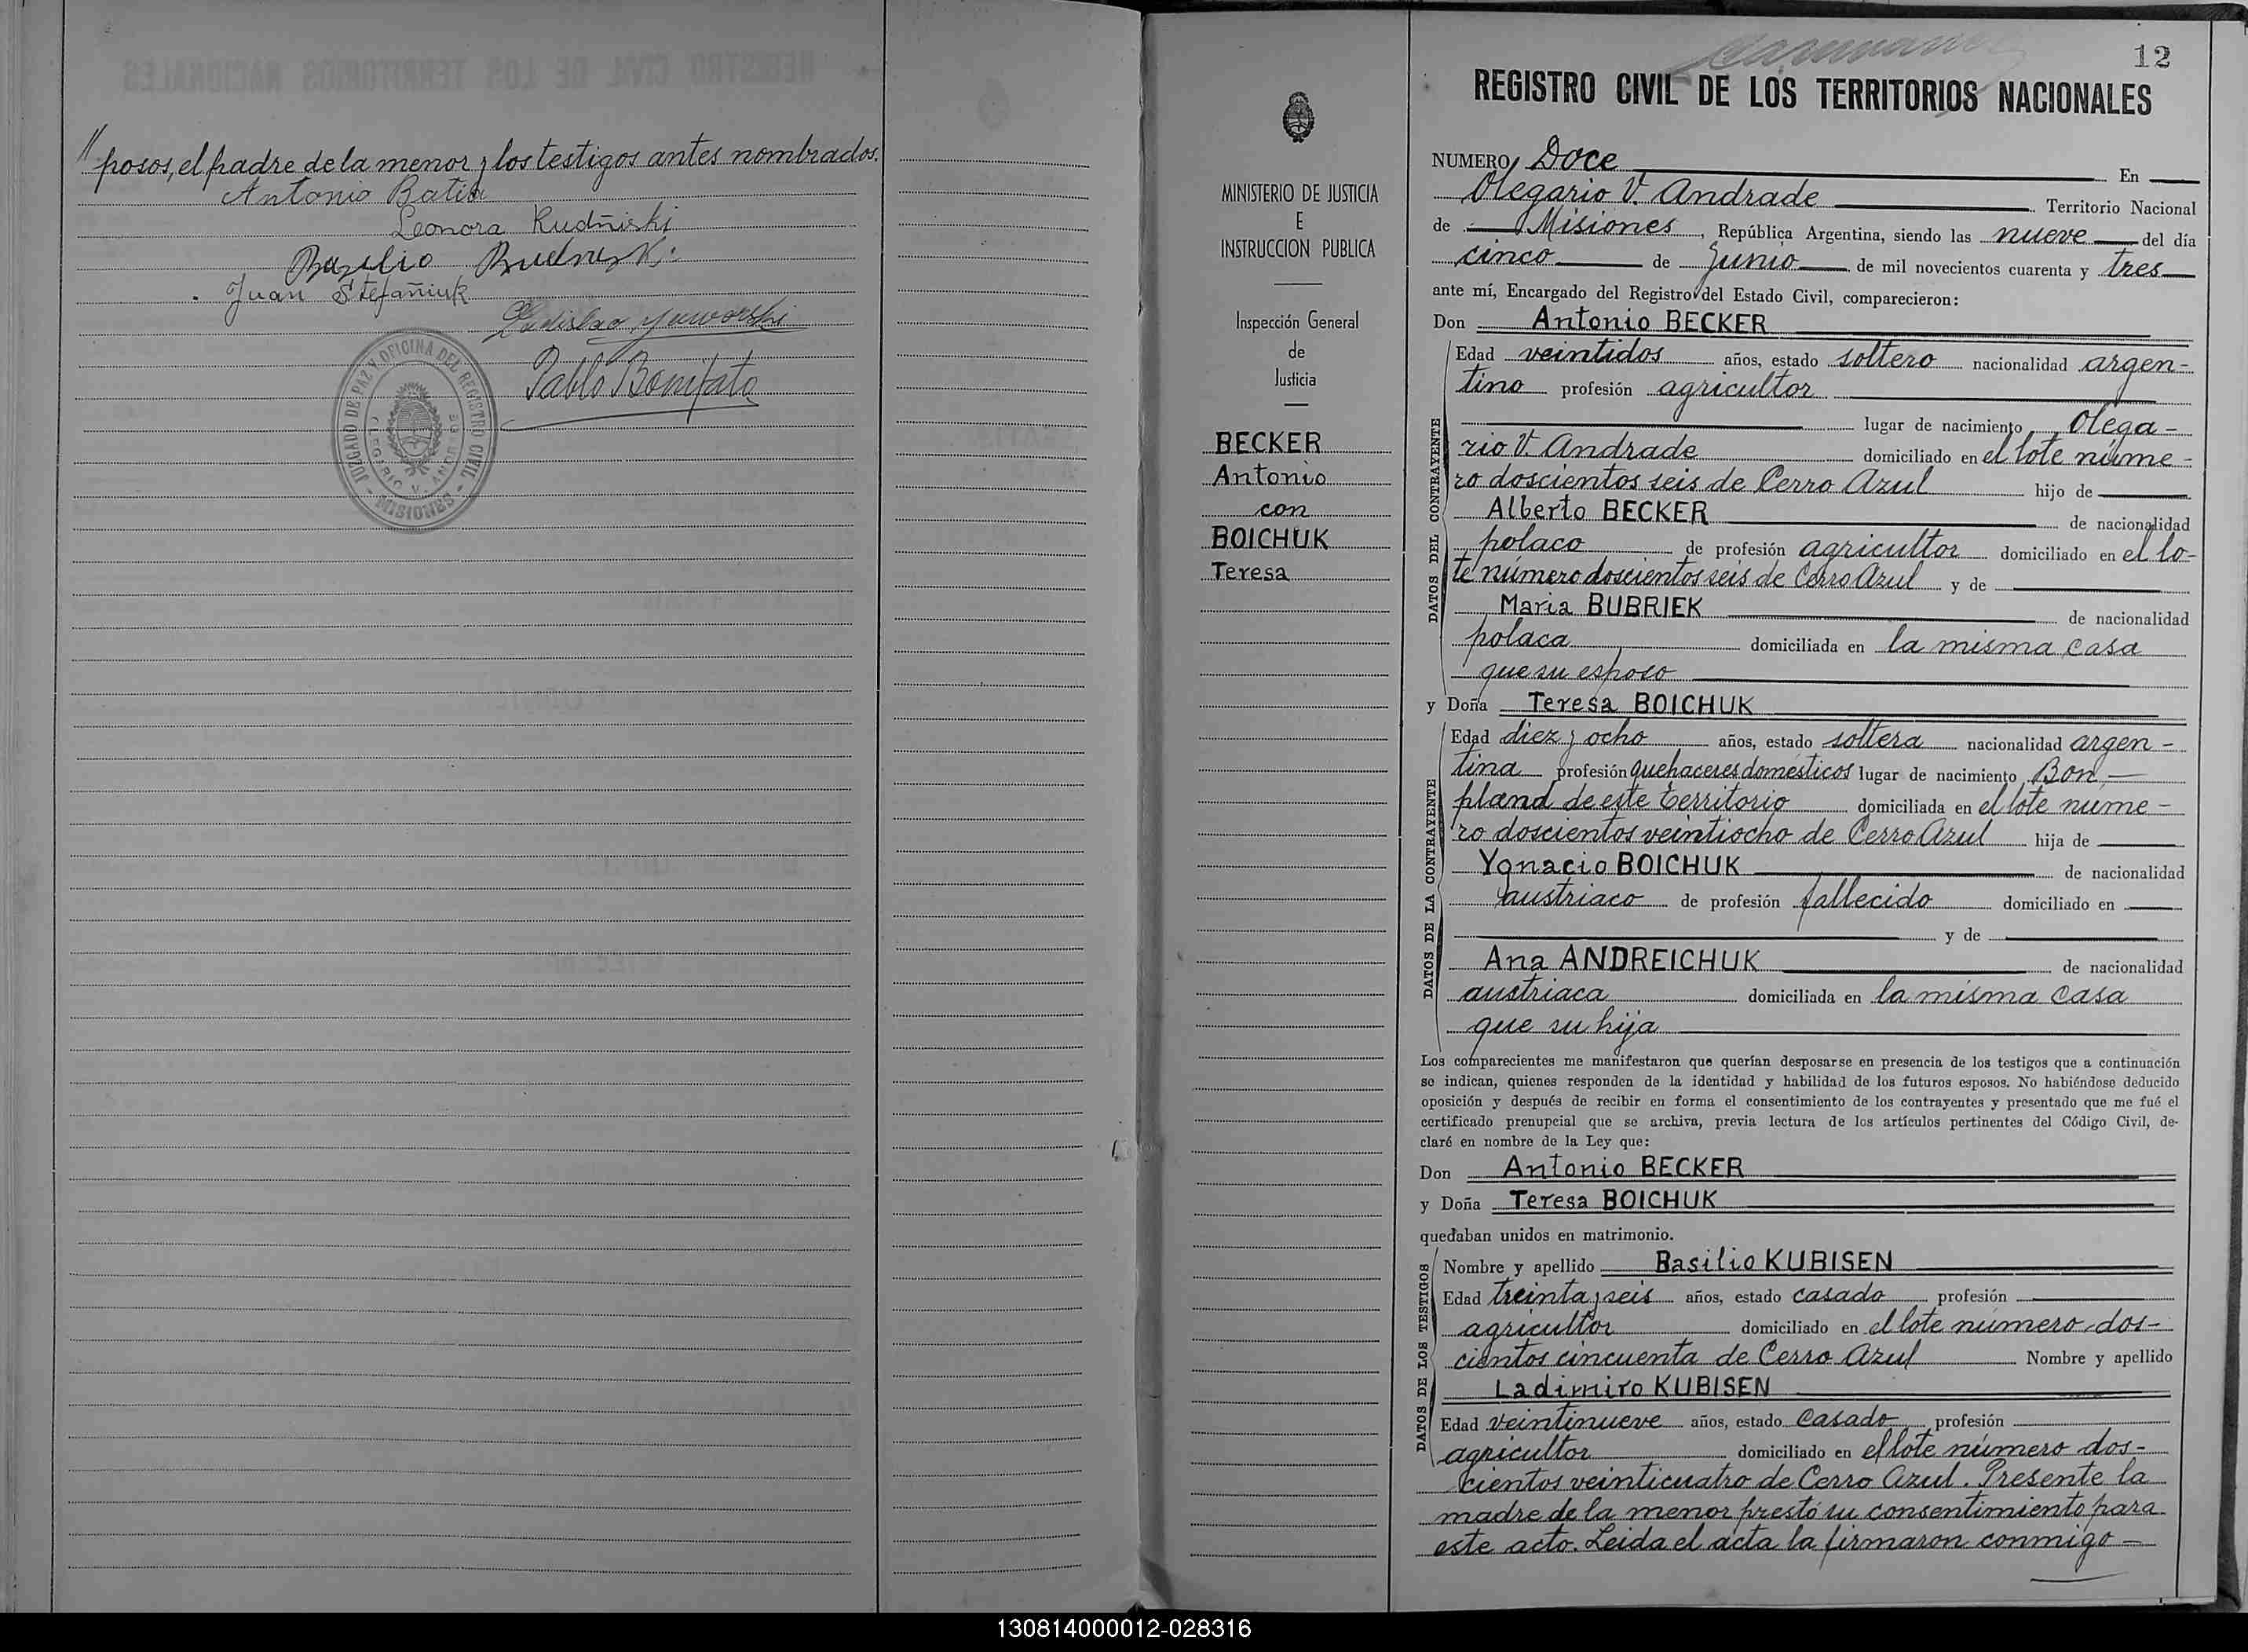 posos, el padre de la menor y los testigos antes nombrados.
Antonio Batiu
Leonora Rudñiski
Juan Stefañiuk
Ladislao Jaworski
Pablo Bonifato
JUZGADO DE PAZ Y OFICINA DEL REGISTRO CIVIL
OLEGARIO V. ANDRADE
- MISIONES -
MINISTERIO DE JUSTICIA
E
INSTRUCCION PUBLICA
Inspección General
de
Justicia
BECKER
Antonio
con
BOICHUK
Teresa
12
REGISTRO CIVIL DE LOS TERRITORIOS NACIONALES
NUMERO Doce En
Olegario V. Andrade Territorio Nacional
de Misiones, República Argentina, siendo las nueve del día
cinco de Junio de mil novecientos cuarenta y tres
ante mí, Encargado del Registro del Estado Civil, comparecieron:
Don Antonio BECKER
DATOS DEL CONTRAYENTE
Edad veintidos años, estado soltero nacionalidad argen-
tino profesión agricultor
lugar de nacimiento Olega-
rio V. Andrade domiciliado en el lote núme-
ro doscientos seis de Cerro Azul hijo de
Alberto BECKER de nacionalidad
polaco de profesión agricultor domiciliado en el lo-
te número doscientos seis de Cerro Azul y de
Maria BUBRIEK de nacionalidad
polaca domiciliada en la misma casa
que su esposo
y Doña Teresa BOICHUK
DATOS DE LA CONTRAYENTE
Edad diez y ocho años, estado soltera nacionalidad argen-
tina profesión quehaceres domésticos lugar de nacimiento Bon-
pland de este territorio domiciliada en el lote núme-
ro doscientos veintiocho de Cerro Azul hija de
Ygnacio BOICHUK de nacionalidad
austriaco de profesión fallecido domiciliado en
y de
Ana ANDREICHUK de nacionalidad
austriaca domiciliada en la misma casa
que su hija
Los comparecientes me manifestaron que querían desposarse en presencia de los testigos que a continuación
se indican, quienes responden de la identidad y habilidad de los futuros esposos. No habiéndose deducido
oposición y después de recibir en forma el consentimiento de los contrayentes y presentado que me fué el
certificado prenupcial que se archiva, previa lectura de los artículos pertinentes del Código Civil, de-
claré en nombre de la Ley que:
Don Antonio BECKER
y Doña Teresa BOICHUK
quedaban unidos en matrimonio.
DATOS DE LOS TESTIGOS
Nombre y apellido Basilio KUBISEN
Edad treinta y seis años, estado casado profesión
agricultor domiciliado en el lote número dos-
cientos cincuenta de Cerro Azul Nombre y apellido
Ladimiro KUBISEN
Edad veintinueve años, estado casado profesión
agricultor domiciliado en el lote número dos-
cientos veinticuatro de Cerro Azul. Presente la
madre de la menor prestó su consentimiento para
este acto. Leida el acta la firmaron conmigo -
130814000012-028316